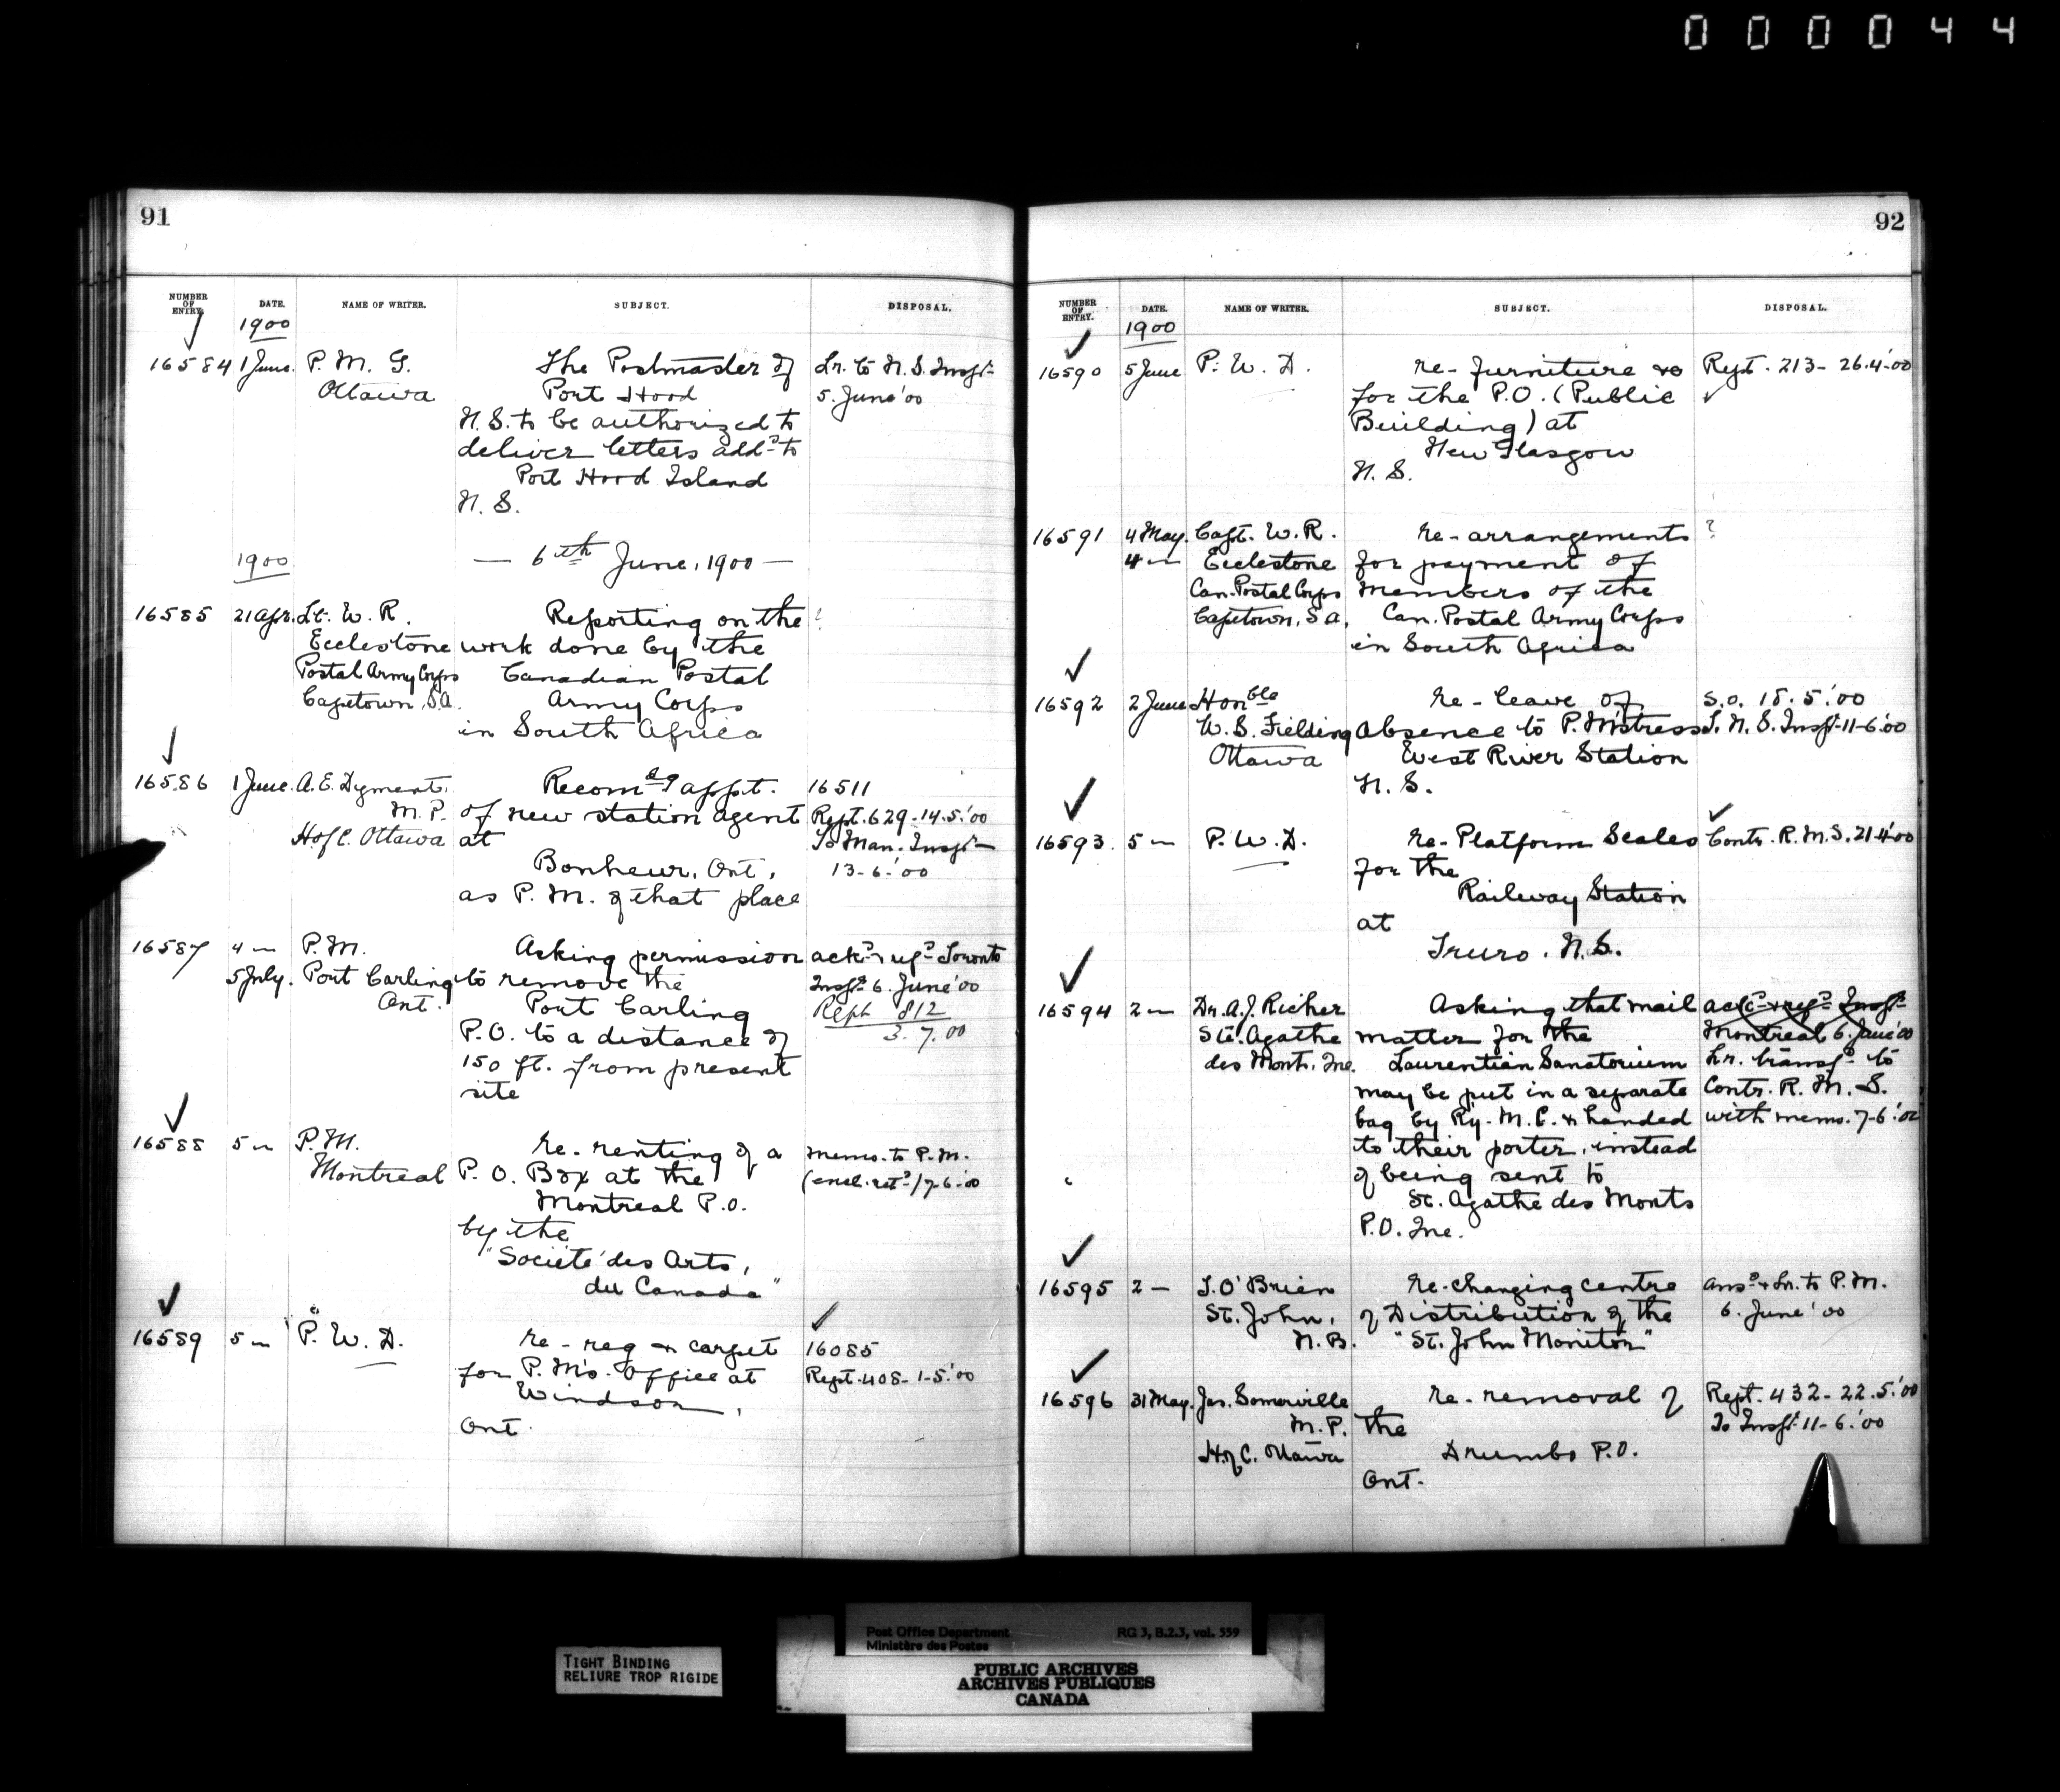 000044
91
NUMBER OF ENTRY. DATE. NAME OF WRITER. SUBJECT. DISPOSAL.
1900
16584 1 June. P. M. G. The Postmaster of Lr. to N. S. Inspr
Ottawa Port Hood 5. June '00
N. S. to be authorized to
deliver letters addd to
Port Hood Island
N. S.
1900 — 6th June, 1900 —
16585 21 Apr. Lt. W. R. Reporting on the ?
Ecclestone work done by the
Postal Army Corps Canadian Postal
Capetown, S.A. Army Corps
in South Africa
16586 1 June. A. E. Dyment, Recomdg appt. 16511
M. P. of new station agent Rept. 629-14.5.'00
H of C. Ottawa at To Man. Inspr
Bonheur, Ont, 13-6-'00
as P. M. of that place
16587 4 " P. M. Asking permission ackd & refd Toronto
5 July. Port Carling to remove the Inspr 6. June '00
Ont. Port Carling Rept 812
P.O. to a distance of 3.7.00
150 ft. from present
site
16588 5 " P. M. re- renting of a memo. to P. M.
Montreal P. O. Box at the (encl. retd) 7-6-00
Montreal P.O.
by the
"Societé des Arts,
du Canada"
16589 5 " P. W. D. re- rug & carpet 16085
for P. M's. Office at Rept. 408-1-5.'00
Windsor,
Ont.
92
NUMBER OF ENTRY. DATE. NAME OF WRITER. SUBJECT. DISPOSAL.
1900
16590 5 June P. W. D. re- furniture &c Rept. 213-26.4.'00
for the P.O. (Public
Building) at
New Glasgow
N. S.
16591 4 May. Capt. W. R. re- arrangements ?
4 " Ecclestone for payment of
Can. Postal Corps members of the
Capetown, S A, Can. Postal Army Corps
in South Africa
16592 2 June Honble re- leave of S.O. 18.5.'00
W. S. Fielding Absence to P. Mistress T. N. S. Inspr 11-6.'00
Ottawa West River Station
N. S.
16593. 5 " P. W. D. re- Platform Scales Contr. R. M. S. 21.4.'00
for the
Railway Station
at
Truro. N. S.
16594 2 " Dr. A. J. Richer Asking that mail ackd & refd Inspr
Ste. Agathe matter for the Montreal 6 June '00
des Monts, Que. Laurentian Sanatorium Lr. transfd to
may be put in a separate Contr. R. M. S.
bag by Ry. M. C. & handed with memo. 7-6.'00
to their porter, instead
of being sent to
St. Agathe des Monts
P.O. Que.
16595 2 — T. O'Brien re- changing centre ansd & Lr. to P. M.
St. John, of Distribution of the 6. June '00
N. B. "St. John Monitor"
16596 31 May. Jas. Somerville re- removal of Rept. 432-22.5.'00
M. P. the To Inspr 11-6.'00
H of C. Ottawa Drumbo P.O.
Ont.
TIGHT BINDING
RELIURE TROP RIGIDE
Post Office Department RG 3, B.2.3, vol. 559
Ministère des Postes
PUBLIC ARCHIVES
ARCHIVES PUBLIQUES
CANADA